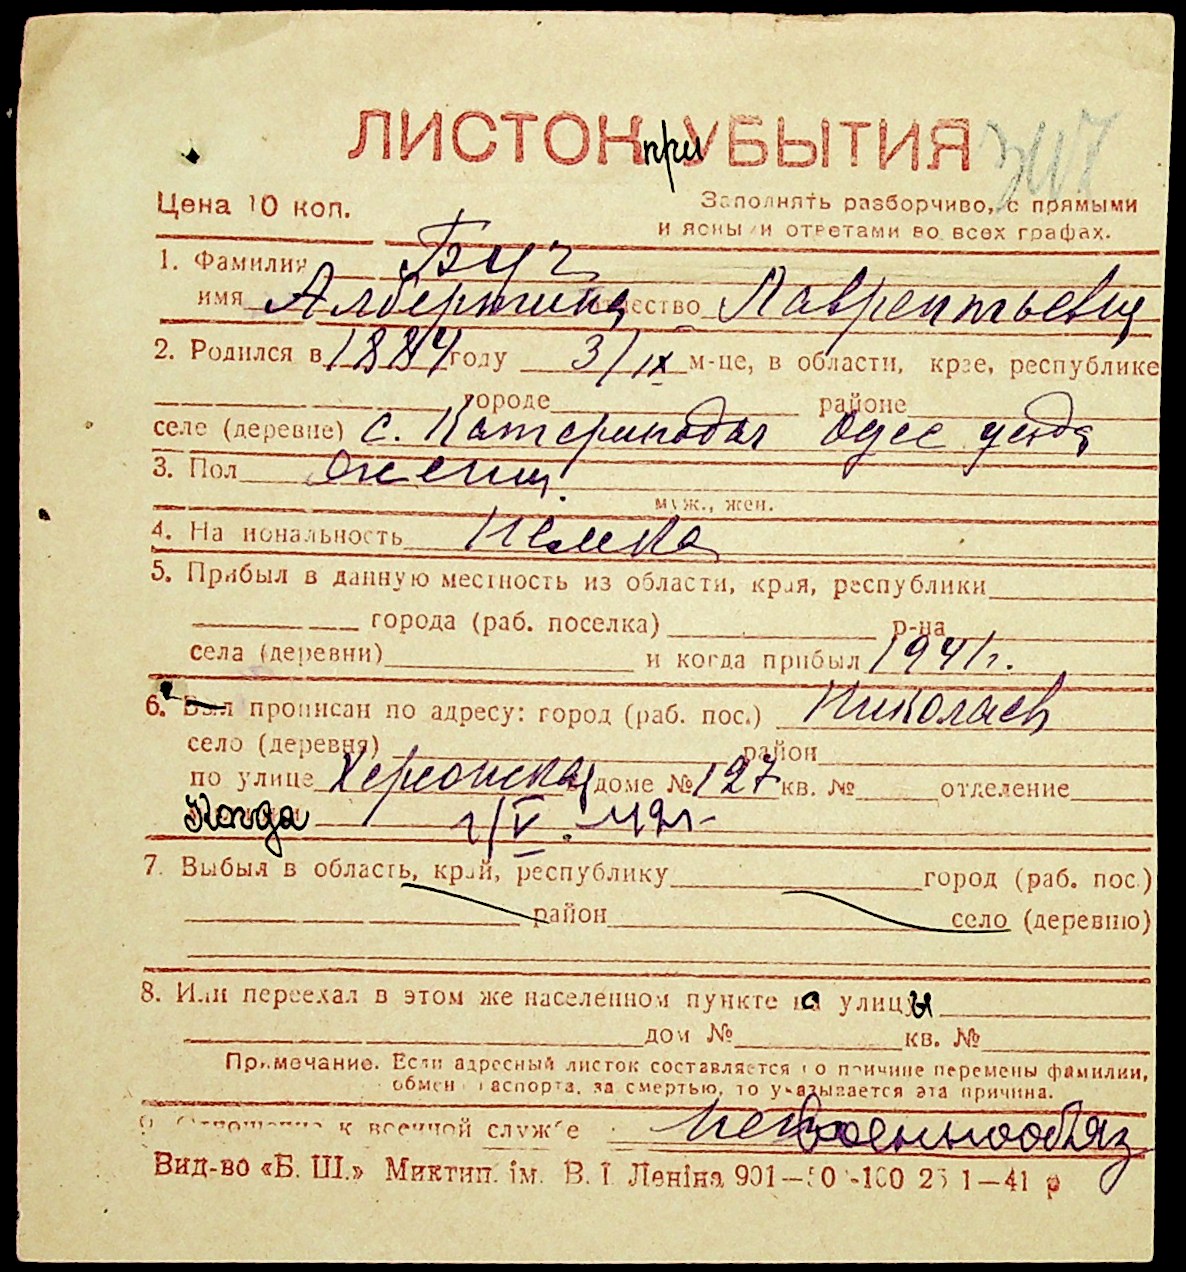 ЛИСТОК при УБЫТИЯ
Цена 10 коп.
Заполнять разборчиво, с прямыми
и ясными ответами во всех графах.
1. Фамилия Буч
имя Альбертина отчество Лаврентьевна
2. Родился в 1884 году 3/IX м-це, в области, крае, республике
городе районе
селе (деревне) с. Катериндал Одес уезда
3. Пол женщ.
муж., жен.
4. Национальность немка
5. Прибыл в данную местность из области, края, республики
города (раб. поселка) р-на
села (деревни) и когда прибыл 1941 г.
6. Был прописан по адресу: город (раб. пос.) Николаев
село (деревня) район
по улице Херсонская доме № 127 кв. № отделение
Когда 1/V. 42 г.
7. Выбыл в область, край, республику город (раб. пос.)
район село (деревню)
8. Или переехал в этом же населенном пункте с улицы
дом № кв. №
Примечание. Если адресный листок составляется по причине перемены фамилии,
обмен паспорта, за смертью, то указывается эта причина.
9. Отношение к военной службе невоеннообяз
Вид-во «Б. Ш.» Миктип. ім. В. І. Леніна 901— -100 1—41 р